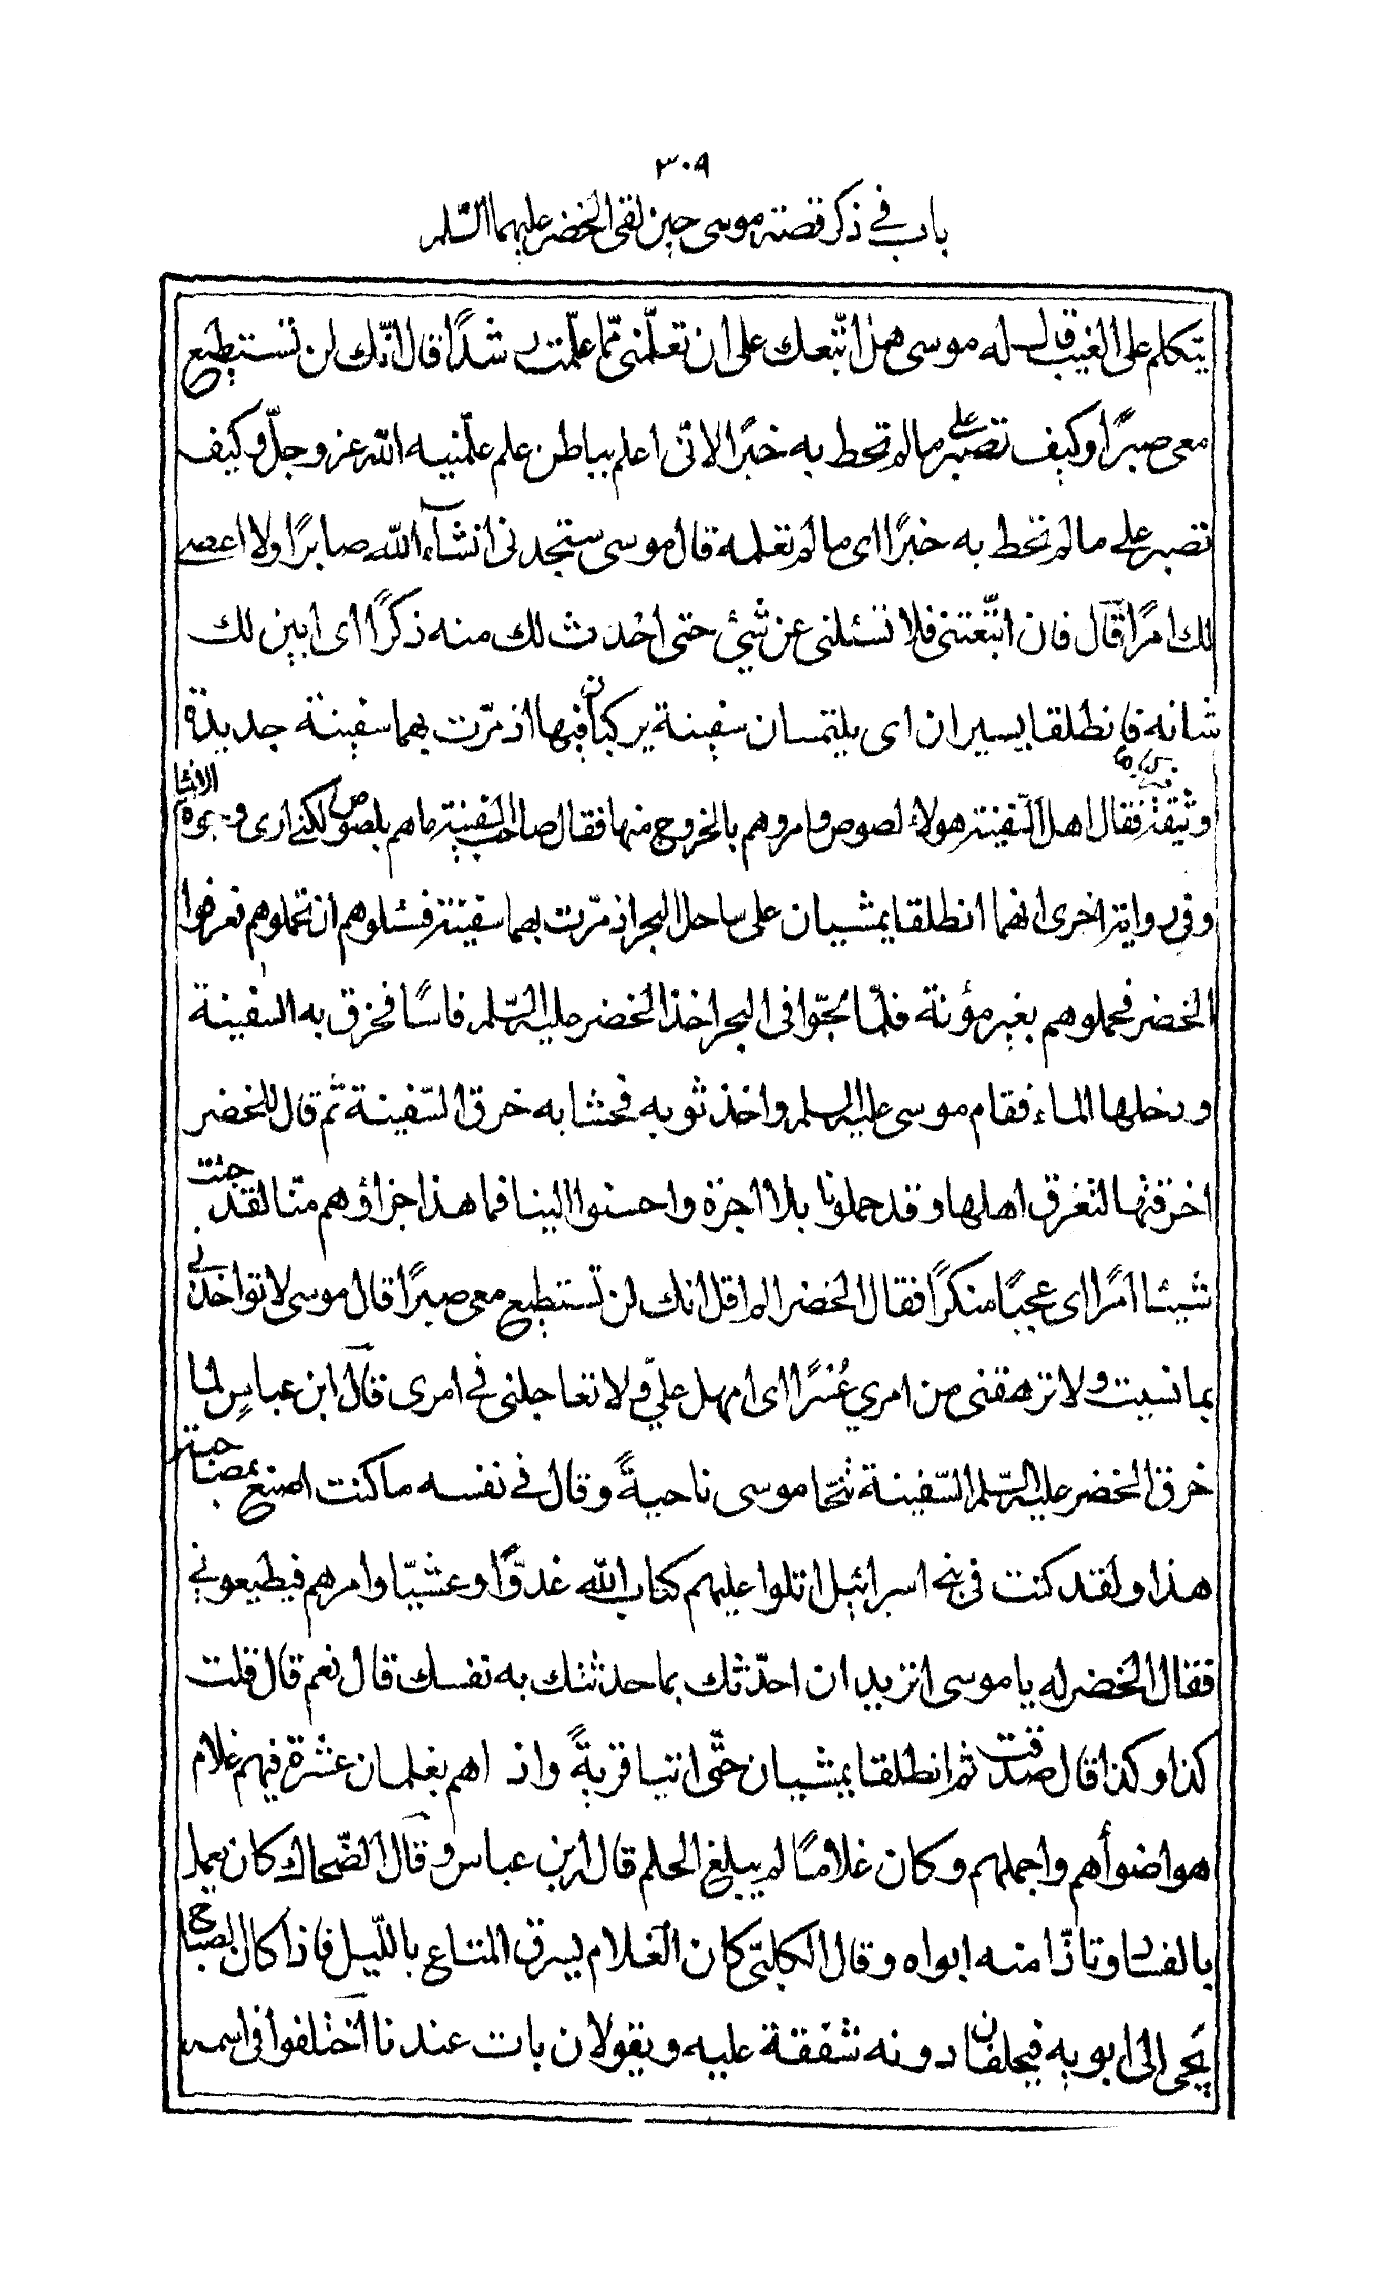 ٣٠٩
باب في ذكر قصة موسى حين لقى الخضر عليهما السّلم
يتكلم على الغيب قال له موسى هل اتّبعك على ان تعلّمنى ممّا علّمت رشدًا قال انّك لن تستطيع
معى صبرًا وكيف تصبر على ما لم تحط به خبرًا لاتى اعلم بباطن علم علّمنيه الله عز وجلّ وكيف
تصبر على ما لم تحط به خبرًا اى ما لم تعلمه قال موسى ستجدنى انشآء الله صابرًا ولا اعصى
لك امرًا قال فان اتّبعتنى فلا تسئلنى عن شئ حتى احدث لك منه ذكرًا اى ابين لك
شانه فانطلقا يسيران اى يلتمسان سفينة يركبان فيها اذ مرّت بهما سفينة جديدة
وثيقة فقال اهل السّفينة هولاء لصوص وامروهم بالخروج منها فقال صاحب السّفينة ما هم بلصوص لكنى ارى وجوه الانبيا
وفى رواية اخرى انهما انطلقا يمشيان على ساحل البحر اذ مرّت بهما سفينة فسئلوهم ان تحملوهم فعرفوا
الخضر فحملوهم بغير مؤنة فلمّا لجّوا فى البحر اخذ الخضر عليه السّلم فاسًا فخرق به السفينة
ودخلها الماء فقام موسى عليه السلم واخذ ثوبه فحشا به خرق السّفينة ثم قال للخضر
اخرقتها لتغرق اهلها وقد حملونا بلا اجرة واحسنوا الينا فما هذا جزاؤهم منّا لقد جئت
شيئا امرًا اى عجبًا منكرًا فقال الخضر الم اقل انك لن تستطيع معى صبرًا قال موسى لا تواخذنى
بما نسيت ولا ترهقنى من امري عُسرًا اى امهل علىّ ولا تعاجلنى في امرى قال ابن عباسٍ لما
خرق الخضر عليه السّلم السّفينة تنحّا موسى ناحيةً وقال في نفسه ما كنت اصنع بمصاحبة
هذا ولقد كنت فى بنى اسرائيل اتلوا عليهم كتاب الله غدوًّا وعشيّا وامرهم فيطيعونى
فقال الخضر له يا موسى اتريد ان احدّثك بما حدثتك به نفسك قال نعم قال قلت
كذا وكذا قال صدقت ثم انطلقا يمشيان حتّى اتيا قريةً واذ اهم بغلمان عشرة فيهم غلام
هو اضوأهم واجملهم وكان غلامًا لم يبلغ الحلم قال ابن عباس وقال الضّحاك كان يعمل
بالفساد وتاذّا منه ابواه وقال الكلبّى كان الغلام يسرق المتاع بالّليل فاذا كان الصباح
يجى الى ابويه فيحلفان دونه شفقة عليه ويقولان بات عندنا اختلفوا فى اسمه